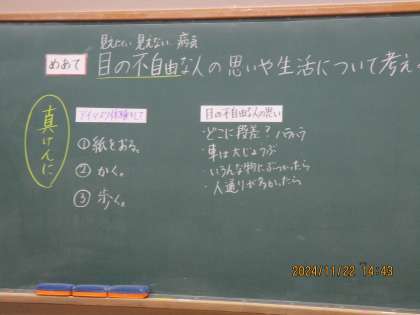 見えにくい 見えない 病気
めあて 目の不自由な人の思いや生活について考え
真けんに
アイマスク体験をして
①紙をおる。
②かく。
③歩く。
目の不自由な人の思い
・どこに段差?ハラハラ
・車は大じょうぶ
・いろんな物にぶつかったら
・人通りが多かったら
2024/11/22 14:43